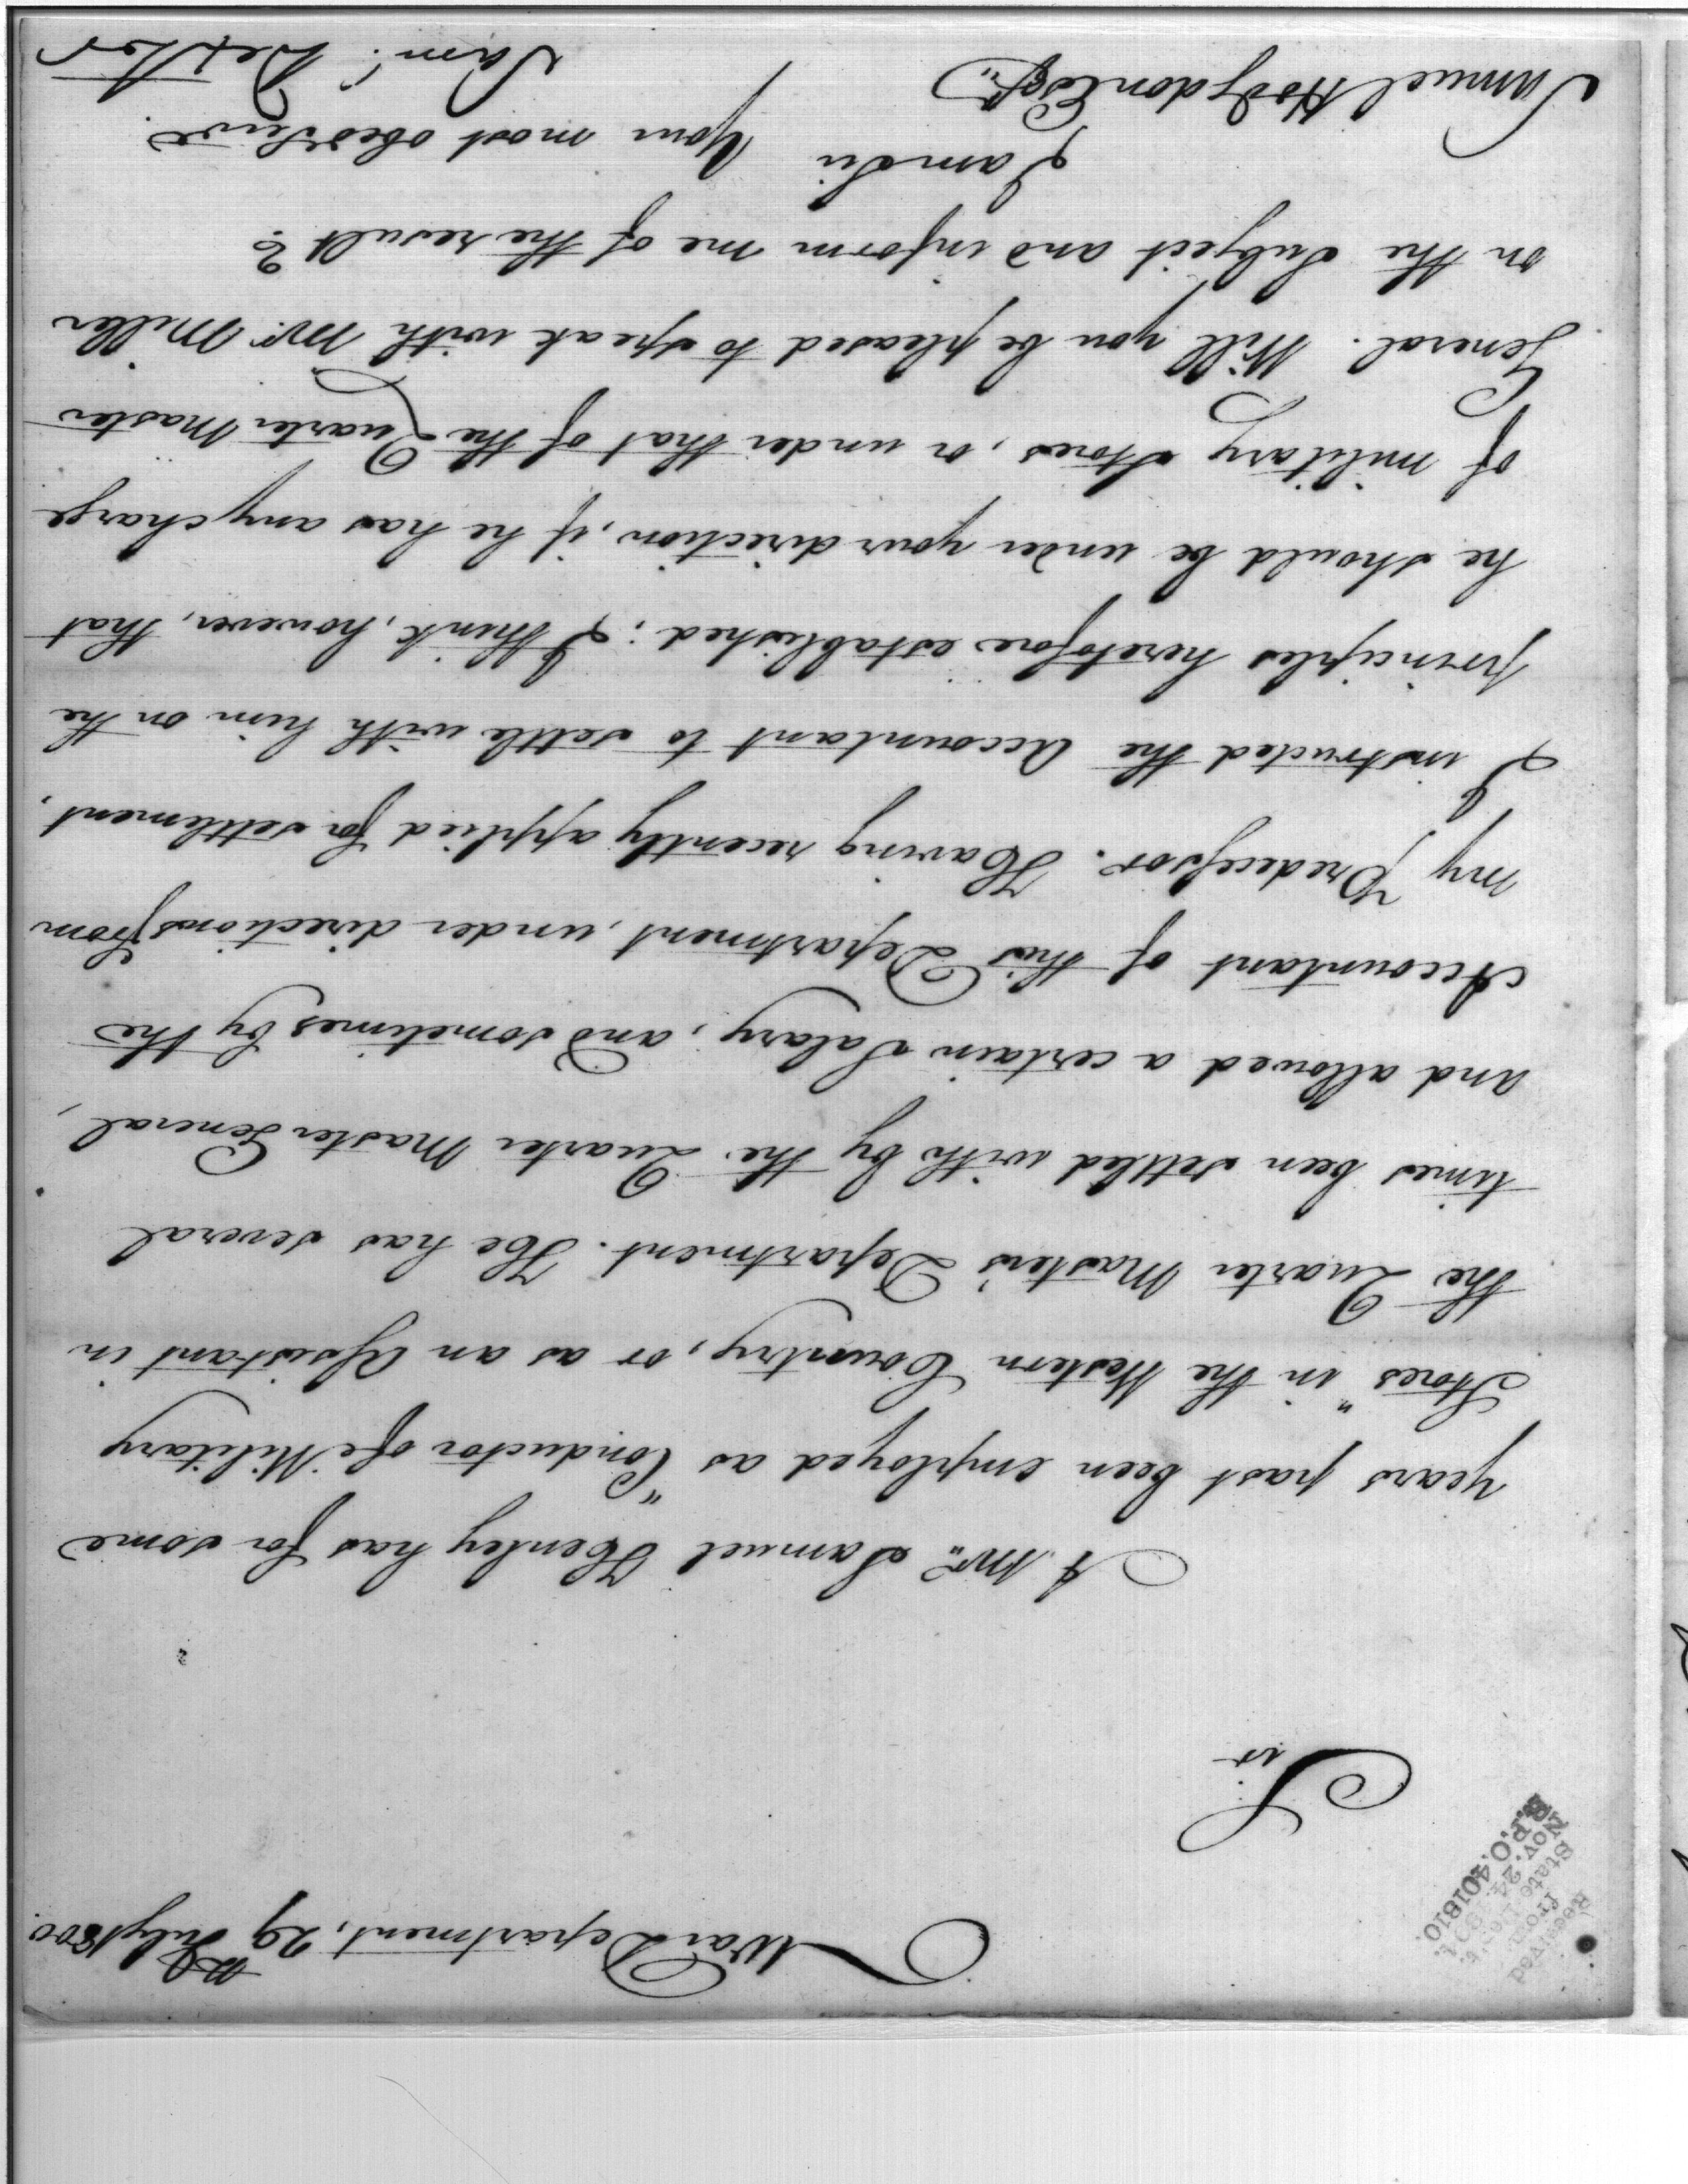 War Department, 29 July 1800.
Received
from
State Dep't.
Nov. 24
R.P.O. 401810.
Sir
A Mr. Samuel Henley has for some
years past been employed as "Conductor of Military
Stores" in the Western Country, or as an Assistant in
the Quarter Master's Department. He has several
times been settled with by the Quarter Master General,
and allowed a certain Salary, and sometimes by the
Accountant of this Department, under directions from
my Predecessor. Having recently applied for settlement,
I instructed the Accountant to settle with him on the
principles heretofore established; I think, however, that
he should be under your direction, if he has any charge
of military Stores, or under that of the Quarter Master
General. Will you be pleased to speak with Mr. Miller
on the subject and inform me of the result?
I am Sir
Your most obed Serv
Samuel Hodgdon Esqr.
Sam. Dexter